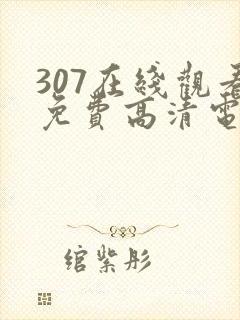 307在綫觀看
免費高清電
綰紫彤